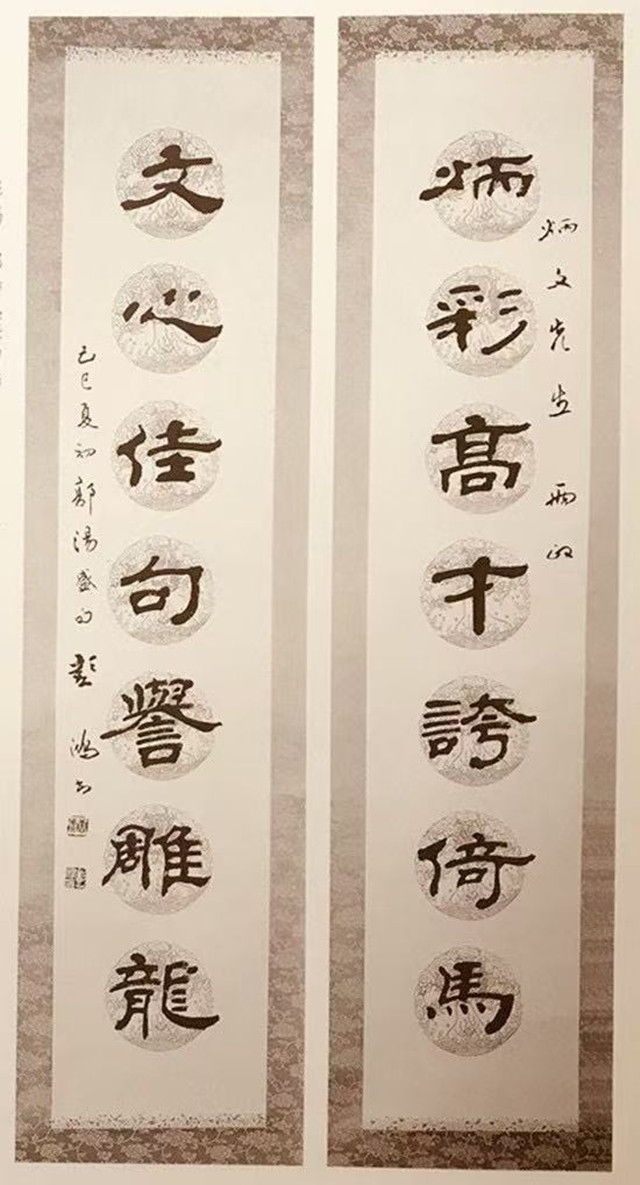 炳文先生
炳彩高才誇倚馬
文心佳句譽雕龍
己巳夏初郭湯盛句 彭鴻書